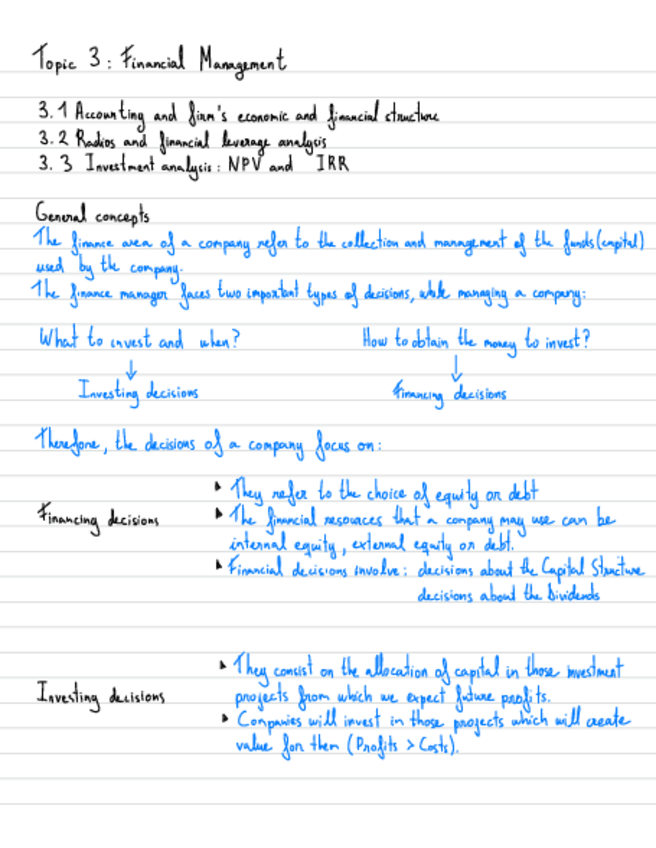 Topic 3: Financial Management
3.1 Accounting and firm's economic and financial structure
3.2 Radios and financial leverage analysis
3.3 Investment analysis: NPV and IRR
General concepts
The finance area of a company refer to the collection and management of the funds (capital)
used by the company.
The finance manager faces two important types of decisions, while managing a company:
What to invest and when? How to obtain the money to invest?
↓ ↓
Investing decisions Financing decisions
Therefore, the decisions of a company focus on:
Financing decisions
▸ They refer to the choice of equity or debt
▸ The financial resources that a company may use can be
internal equity, external equity or debt.
▸ Financial decisions involve: decisions about the Capital Structure
decisions about the Dividends
Investing decisions
▸ They consist on the allocation of capital in those investment
projects from which we expect future profits.
▸ Companies will invest in those projects which will create
value for them (Profits > Costs).